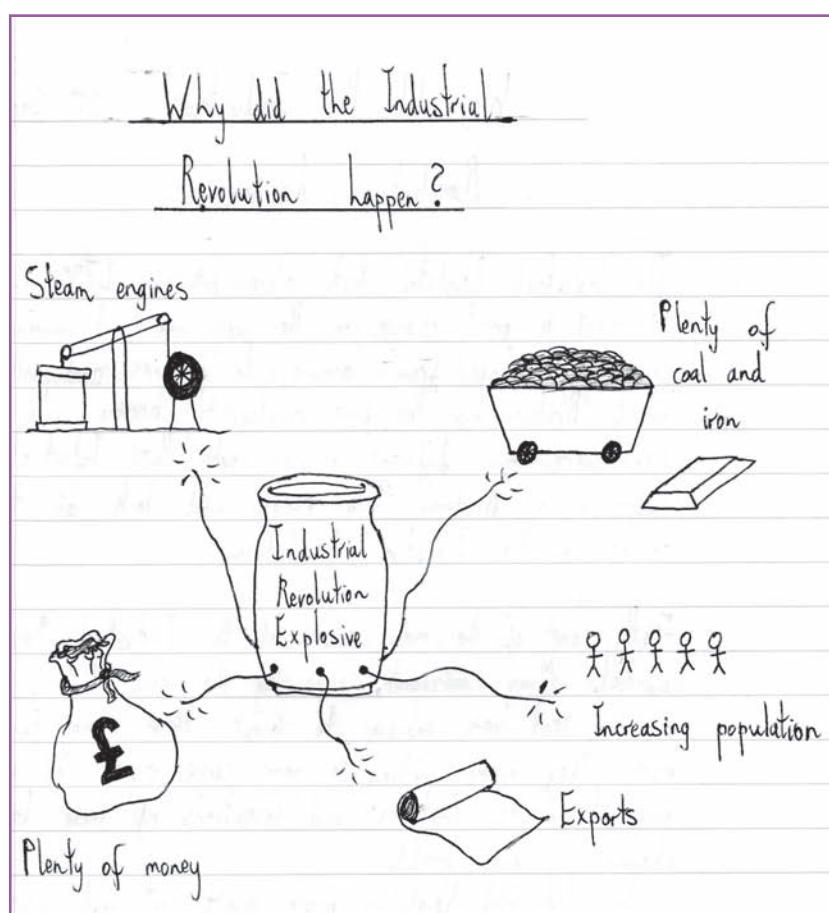 Why did the Industrial
Revolution happen?
Steam engines
Plenty of
coal and
iron
Industrial
Revolution
Explosive
£
Increasing population
Exports
Plenty of money